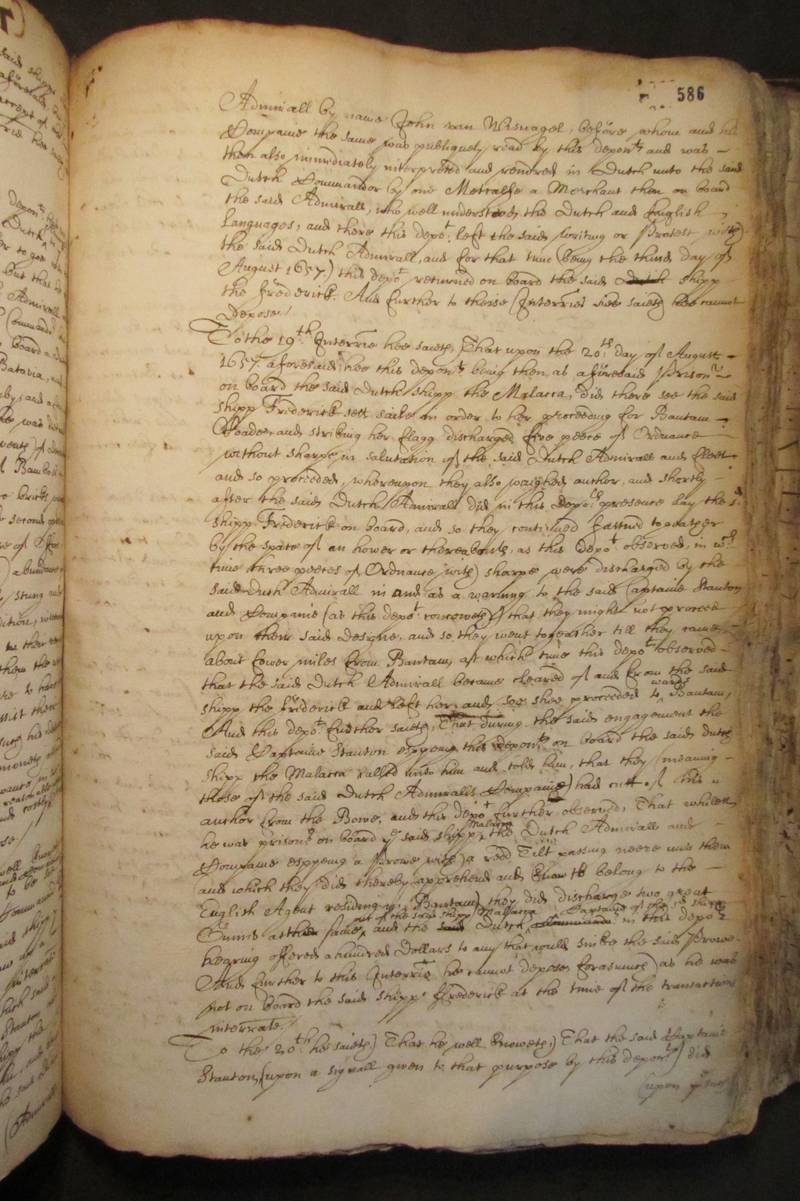 586
Admirall by name John van Wesnagel, before whom and his
Companie the same was publiquely read by this depon:t and was
then also immediately interpreted and rendred in Dutch unto the said
Dutch Commandor by one Metcalfe a Merchant then on board
the said Admirall, who well understood the Dutch and English
Languages, and there this depo:t left the said writing or Protest with
the said Dutch Admirall, and for that time (being the third day of
August 1657.) this depo:t returned on board the said Dutch shipp
the Frederick. And further to these Interries hee saieth hee cannot
depose./
To the 19:th Interrie hee saieth, That upon the 20:th day of August
1657 aforesaid, hee this depon:t being then as aforesaid prison:r
on board the said Dutch shipp the Malacca, did there see the said
shipp Frederick sett saile in order to her proceeding for Bantam
Roade, and striking her flagg discharged five peece of Ordnance
without sharpe, in salutation of the said Dutch Admirall and fleet
and so proceeded, whereupon they also waighed anchor, and shortly
after the said Dutch Admirall did in this depo:ts presence lay the s:d
shipp Frederick on board, and so they continued fastned together
by the space of an hower or thereabouts, as this depo:t observed, in w:ch
time three peeces of Ordnance with sharpe were discharged by the
said Dutch Admirall in and as a warning to the said Captaine Stanton
and Companie (as this depo:t conceiveth) that they might not proceed
upon their said designe, and so they went together till they came
about fower miles from Bantam, at which time this depo:t observed
that the said Dutch Admirall became cleared of and from the said
shipp the Frederick and left her, and soe shee proceeded to wards Bantam,
And this depo:t further saieth, That during the said engagement the
said Captaine Stanton espying this depon:t on board the said Dutch
shipp the Malacca called unto him and told him, that they (meaning
those of the said Dutch Admiralls Companie) had cutt of his
anchor from the Bowe, and this depo:t further observed, That whilest
he was prison:r on board y:e said shipp Malacca, the Dutch Admirall and
Companie espyeing a Prowe with a redd Tilt passing neere unto them
and which they did thereby apprehend and know to belong to the
English Agent residing at Bantam, they did discharge two great
Gunns at the same, and the said Dutch Captaine of the s:d shipp
out of the said shipp Malacca Commandor in this depo:ts
hearing offered a hundred Dollars to any that could sinke the said Prowe.
And further to this Interrie he cannot depose, forasmuch as hee was
not on board the said shipp Frederick at the time of the transactions
interrate./
To the 20:th he saieth, That he well knoweth, That the said Captaine
Stanton, (upon a signall given to that purpose by this depon:t) did
(upon y:e